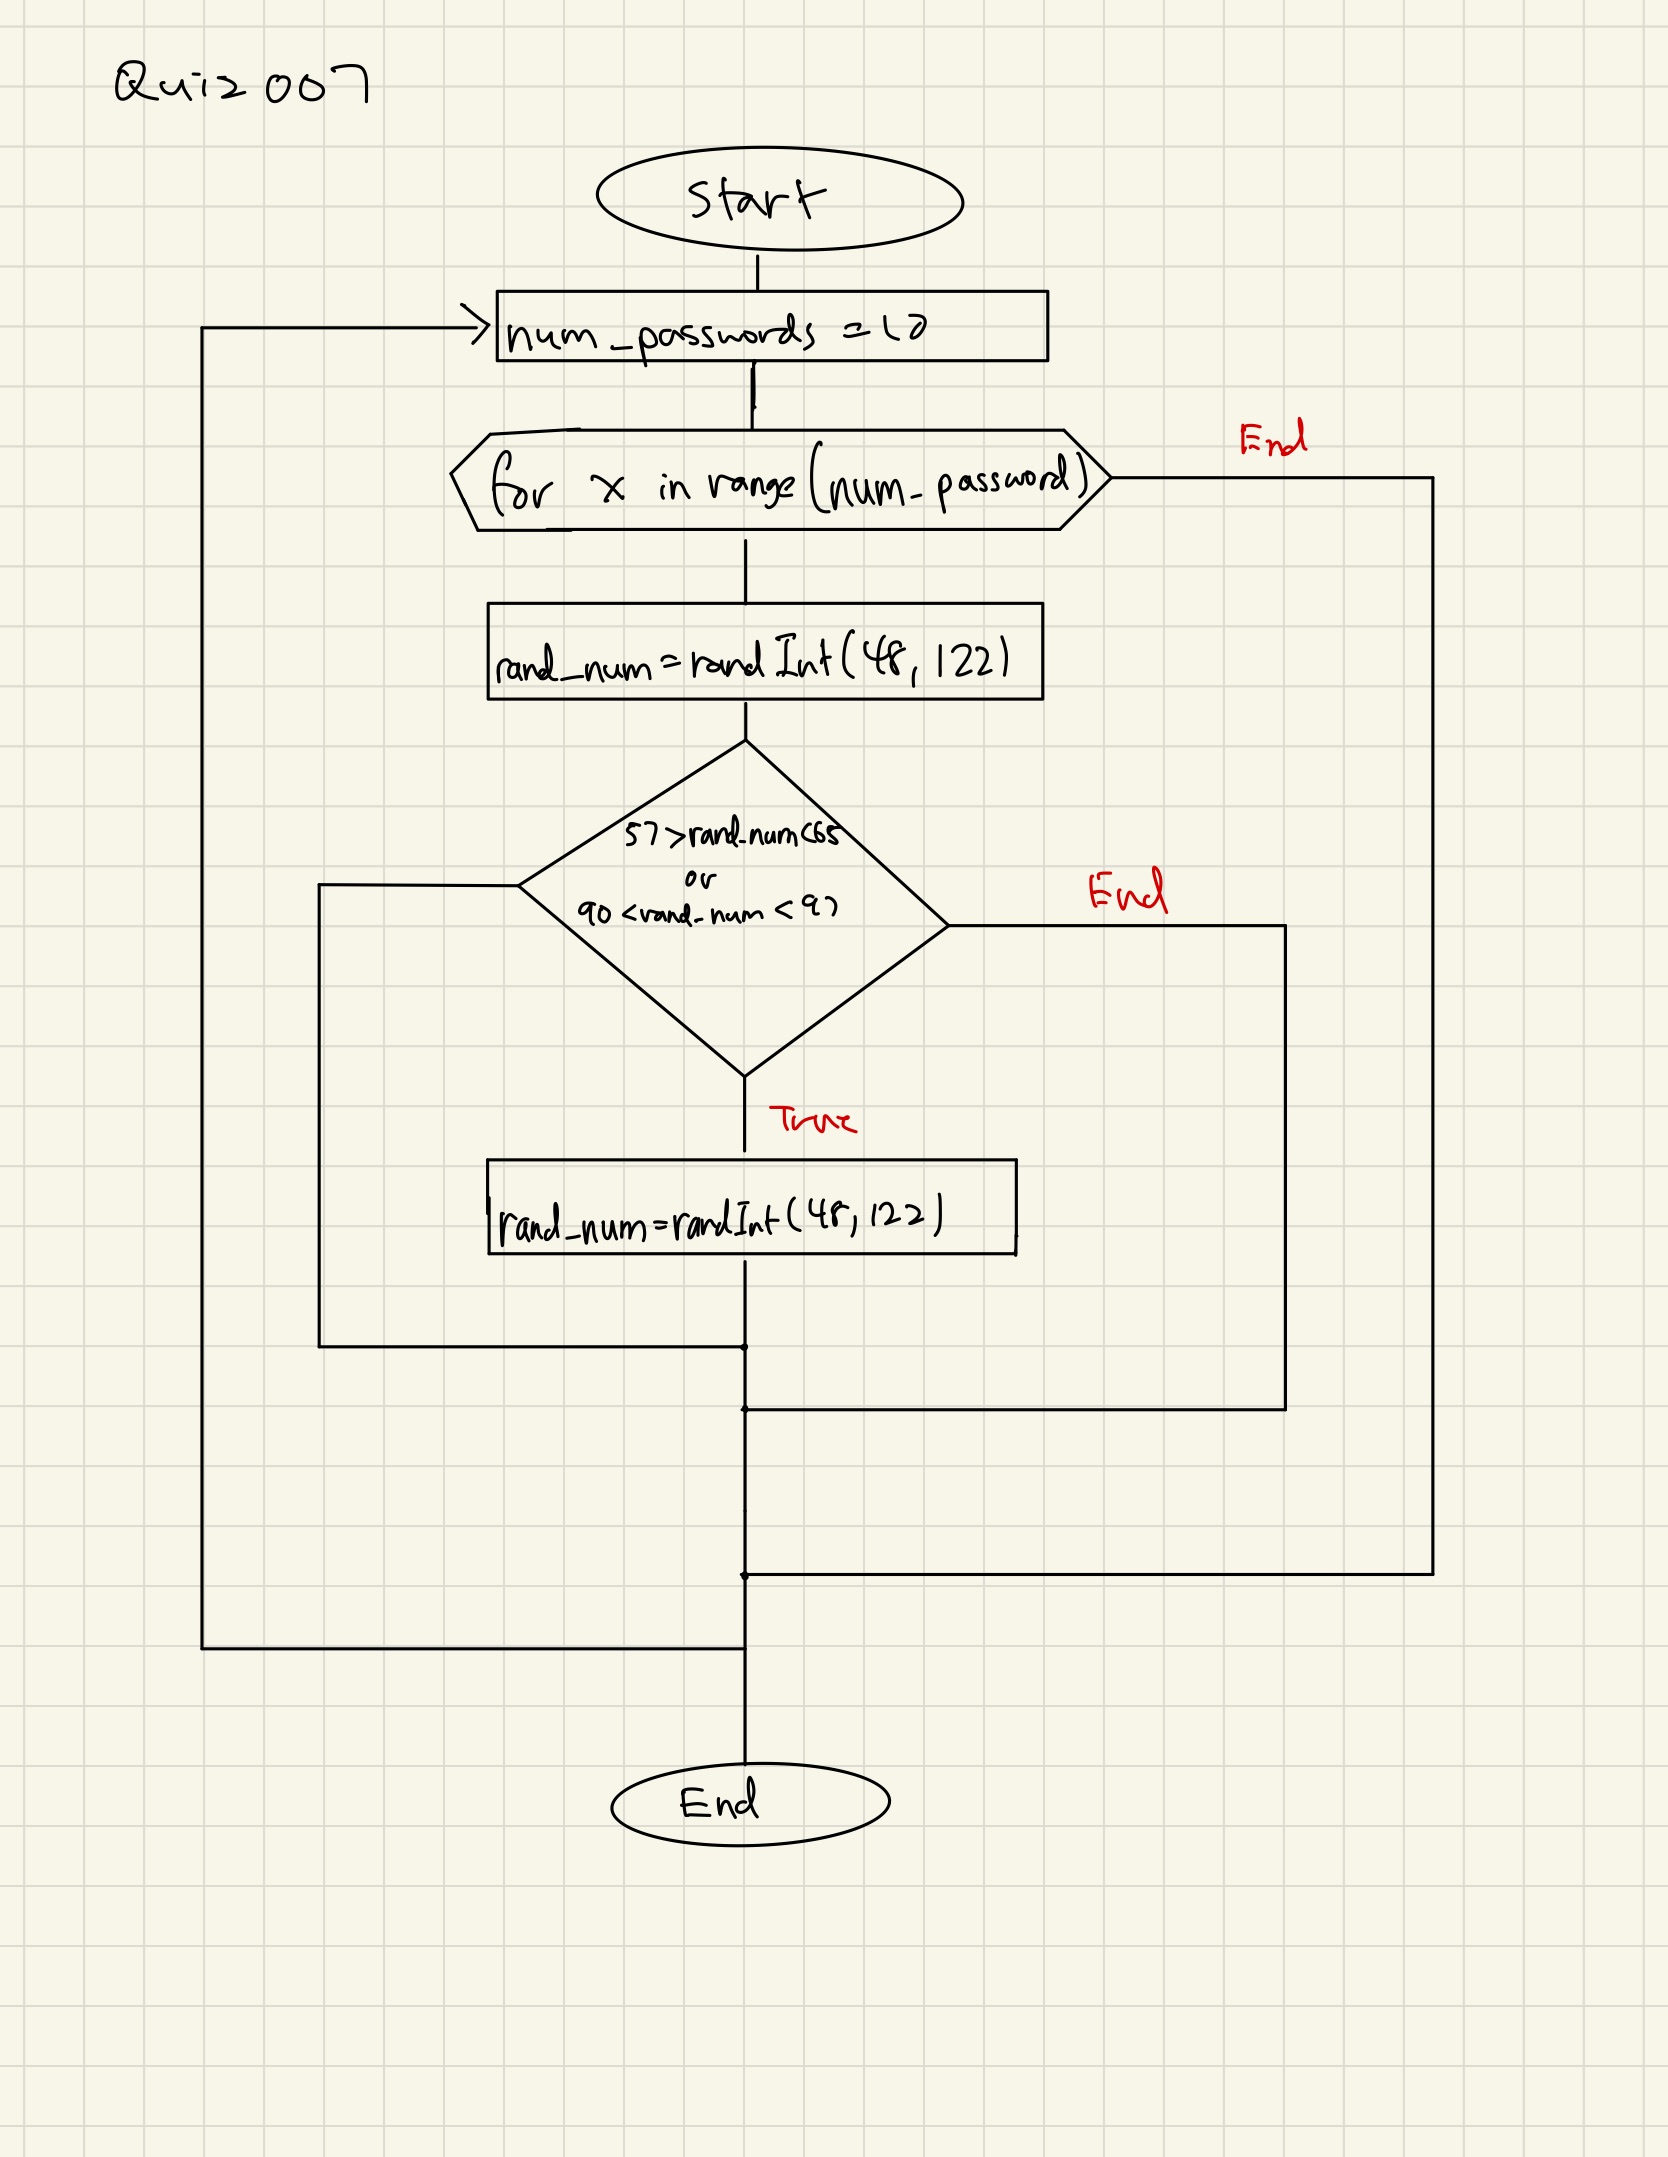 Quiz 007
Start
num_passwords = 10
for x in range (num_password)
End
rand_num = randInt(48, 122)
57 > rand_num < 65
or
90 < rand_num < 97
End
True
rand_num = randInt(48, 122)
End